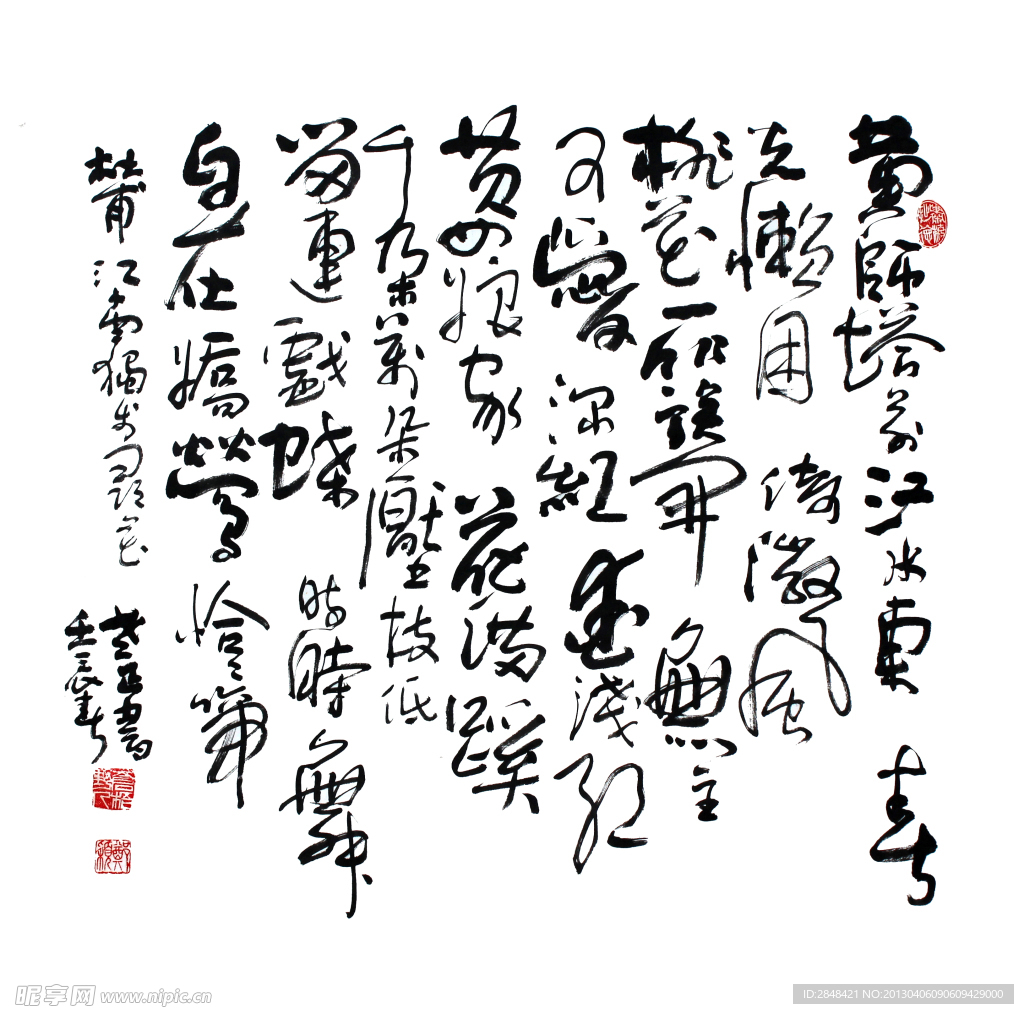 黄師塔前江水東 春
光懶困 倚微風
桃花一簇開 無主
可愛深紅愛淺紅
黄四娘家 花滿蹊
千朵萬朵壓枝低
留連戲蝶 時時舞
自在嬌鶯 恰恰啼
杜甫江畔獨步尋花
壬辰春
昵享网 www.nipic.cn
ID:2848421 NO:20130406090609429000